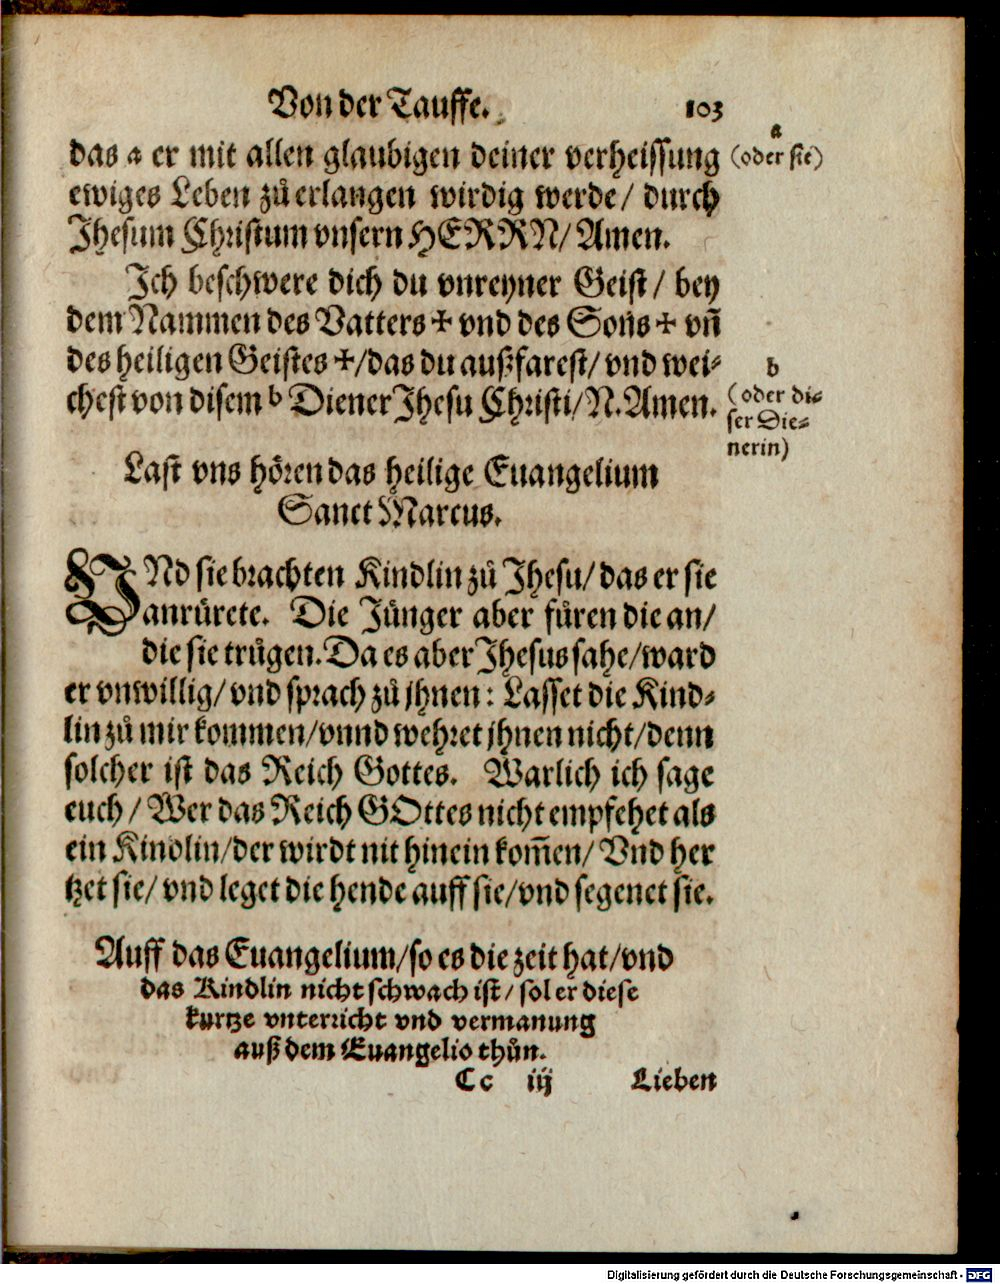 Von der Tauffe. 103
das a er mit allen glaubigen deiner verheissung
a
(oder sie)
ewiges Leben zů erlangen wirdig werde/ durch
Jhesum Christum vnsern HERRN/ Amen.
Ich beschwere dich du vnreyner Geist/ bey
dem Nammen des Vatters ✢ vnd des Sons ✢ vñ
des heiligen Geistes ✢/das du außfarest/ vnd wei⸗
chest von disem b Diener Jhesu Christi/ N. Amen.
b
(oder di⸗
ser Die⸗
nerin)
Last vns hören das heilige Euangelium
Sanct Marcus.
VNd sie brachten Kindlin zů Jhesu/ das er sie
anrürete. Die Jünger aber füren die an/
die sie trůgen. Da es aber Jhesus sahe/ ward
er vnwillig/ vnd sprach zů jhnen: Lasset die Kind⸗
lin zů mir kommen/ vnnd wehret jhnen nicht/ denn
solcher ist das Reich Gottes. Warlich ich sage
euch/ Wer das Reich GOttes nicht empfehet als
ein Kindlin/ der wirdt nit hinein kom̃en/ Vnd her
tzet sie/ vnd leget die hende auff sie/ vnd segenet sie.
Auff das Euangelium/ so es die zeit hat/ vnd
das Kindlin nicht schwach ist/ sol er diese
kurtze vnterricht vnd vermanung
auß dem Euangelio thůn.
Cc iij Lieben
Digitalisierung gefördert durch die Deutsche Forschungsgemeinschaft - DFG